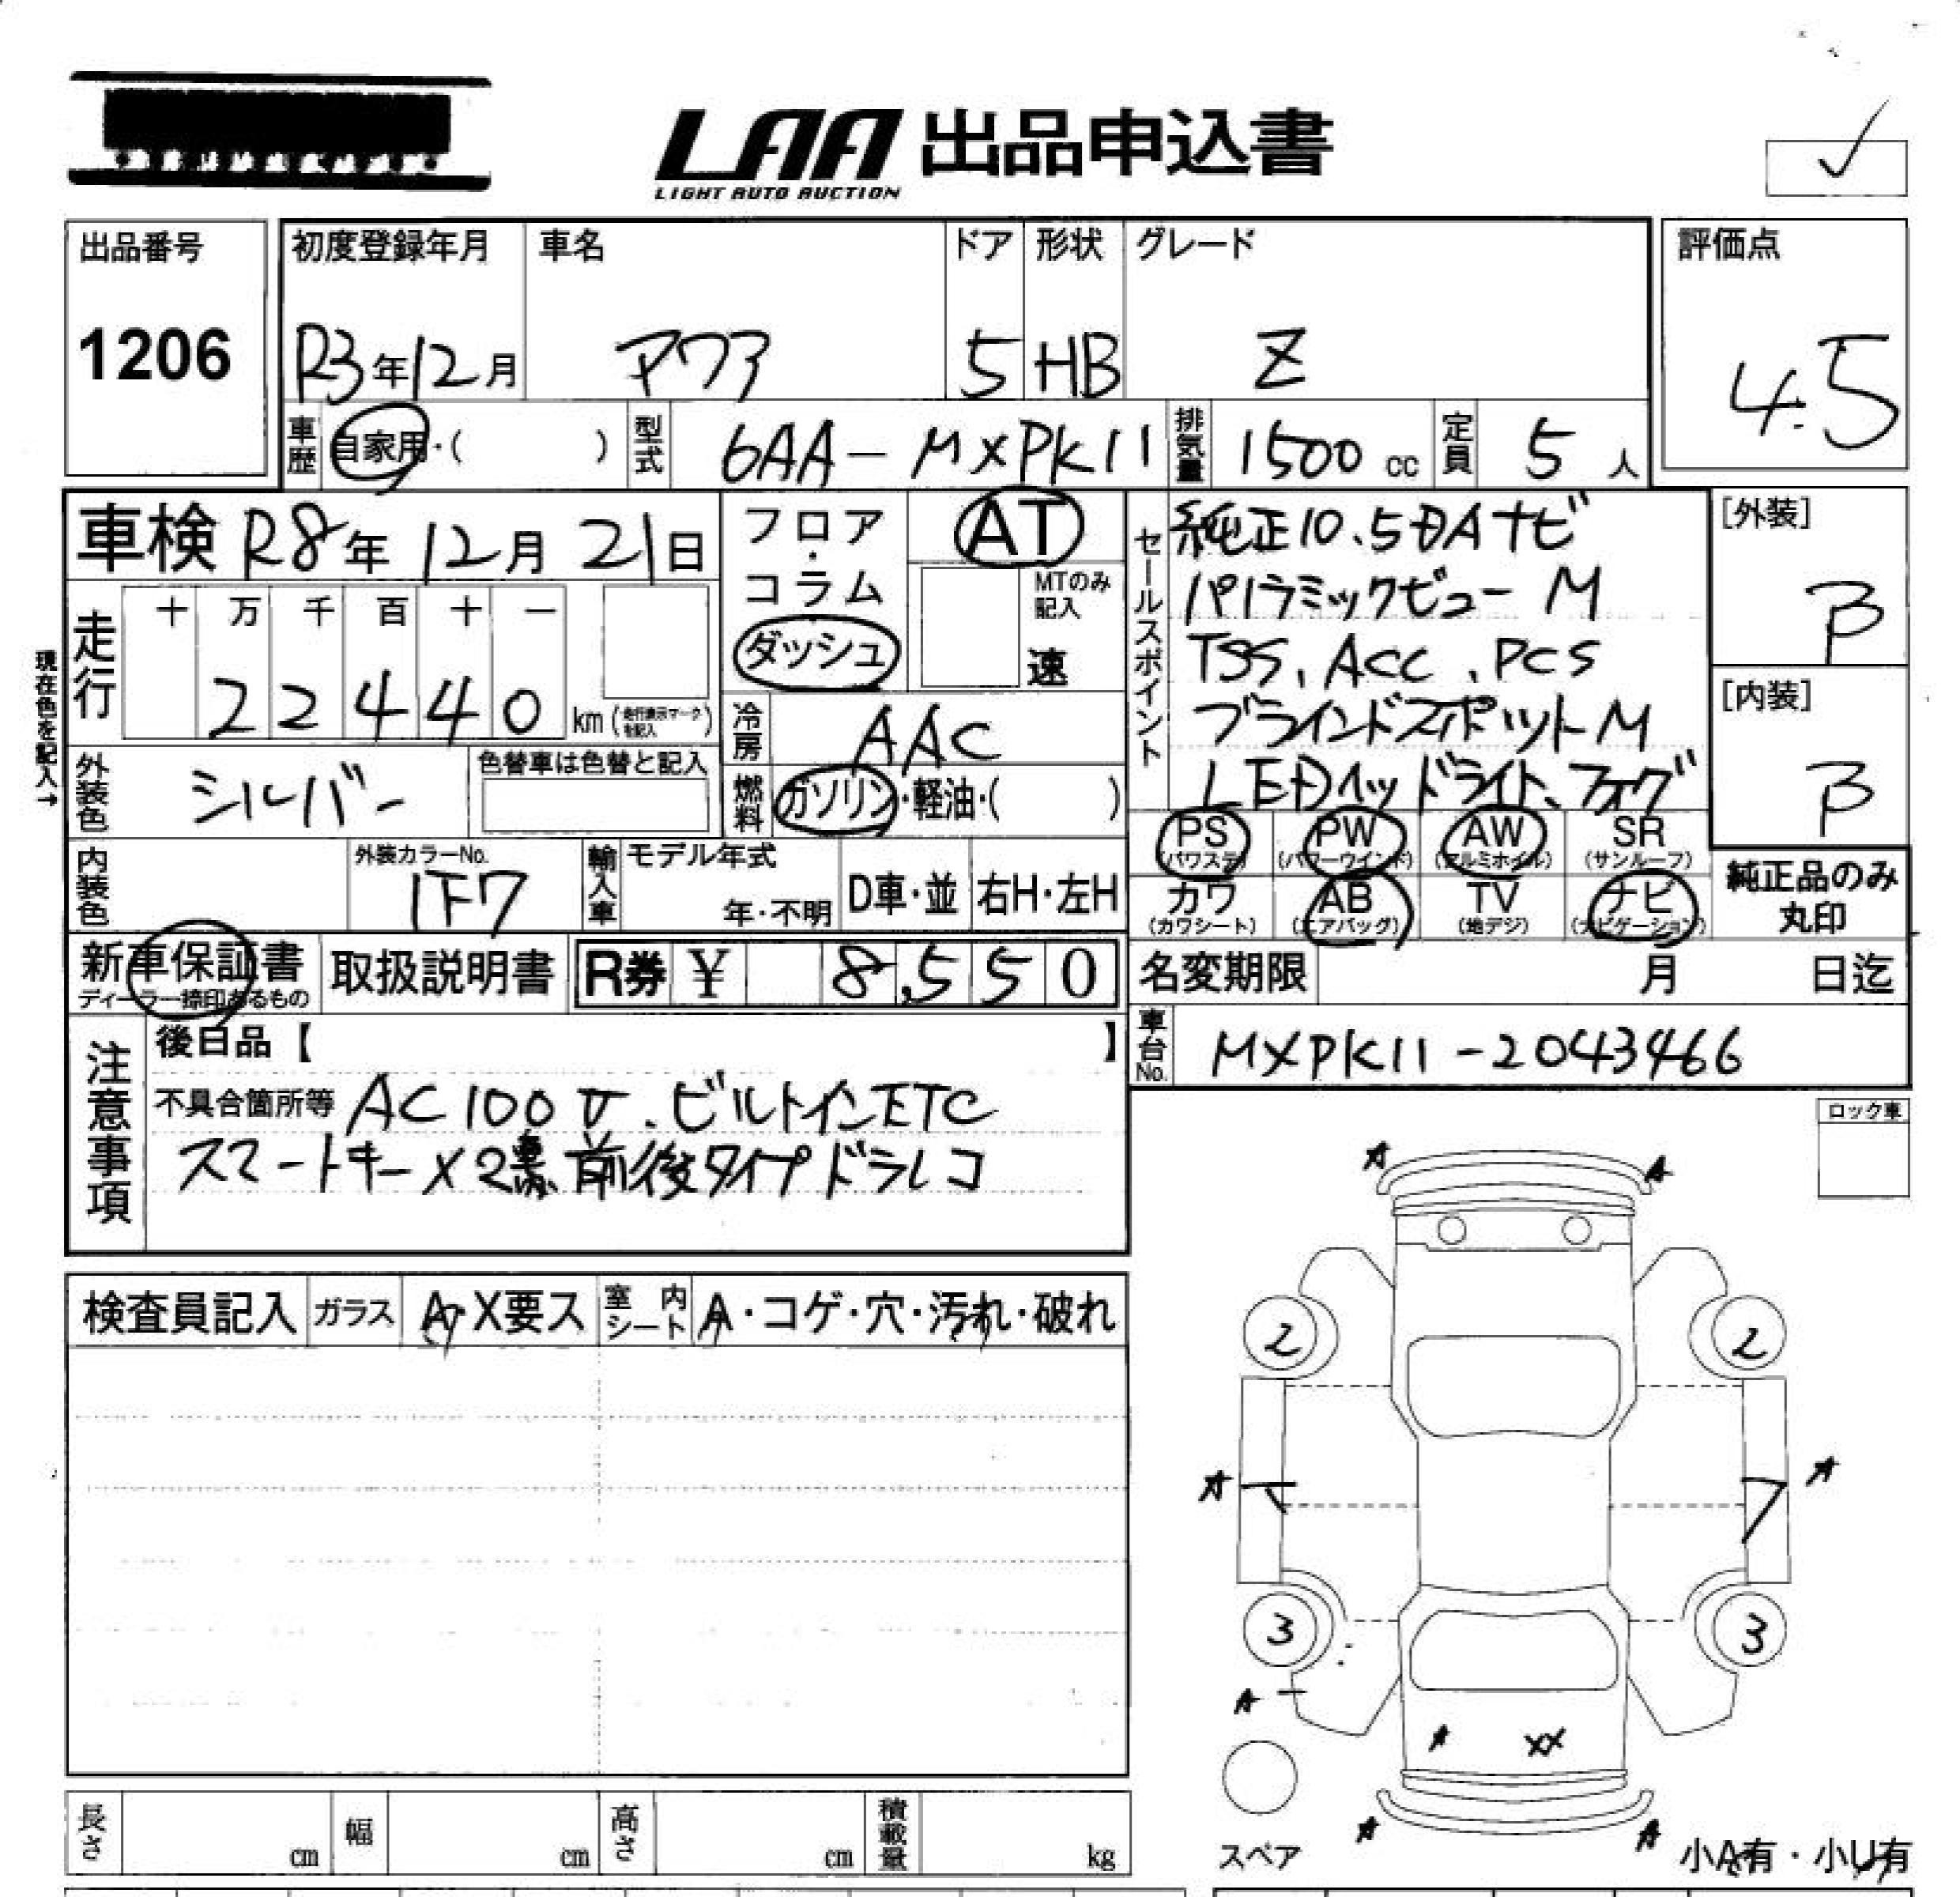 LAA 出品申込書
LIGHT AUTO AUCTION
✓
出品番号
1206
初度登録年月
R3年12月
車名
アクア
ドア
5
形状
HB
グレード
Z
評価点
4.5
車歴
自家用・( )
型式
6AA-MXPK11
排気量
1500 cc
定員
5人
車検 R8年12月21日
走行
十 万 千 百 十 一
22440 km (走行表示マークを記入)
現在色を記入→
外装色
シルバー
色替車は色替と記入
内装色
外装カラーNo.
1F7
輸入車
モデル年式
年・不明
D車・並
右H・左H
フロア・コラム
ダッシュ
AT
MTのみ記入
速
冷房
AAC
燃料
ガソリン・軽油・( )
セールスポイント
純正10.5DAナビ
パノラミックビューM
TSS、ACC、PCS
ブラインドスポットM
LEDヘッドライト、フォグ
[外装]
B
[内装]
B
PS (パワステ)
PW (パワーウインド)
AW (アルミホイル)
SR (サンルーフ)
カワ (カワシート)
AB (エアバッグ)
TV (地デジ)
ナビ (ナビゲーション)
純正品のみ丸印
新車保証書
ディーラー捺印あるもの
取扱説明書
R券 ¥ 8,550
名変期限 月 日迄
車台No.
MXPK11-2043466
注意事項
後日品【 】
不具合箇所等 AC100V、ビルトインETC
スマートキー×2 前後タイプドラレコ
ロック車
検査員記入
ガラス
A・X要ス
室内シート
A・コゲ・穴・汚れ・破れ
A A
2 2
A A
3 3
A
A XX
A A
スペア
小A有・小U有
長さ cm
幅 cm
高さ cm
積載量 kg